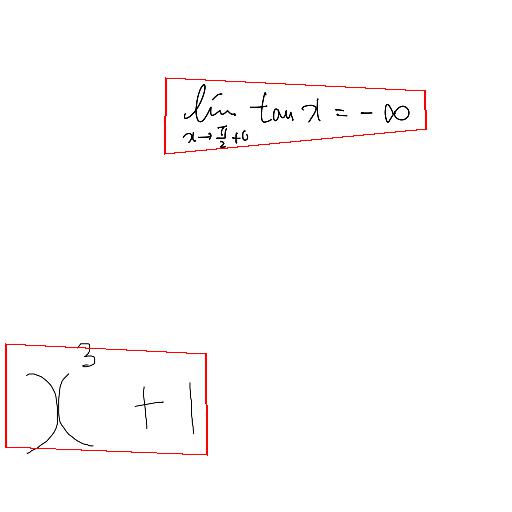 \lim_{x \to \frac{\pi}{2}+0} \tan x = -\infty
x^3 + 1